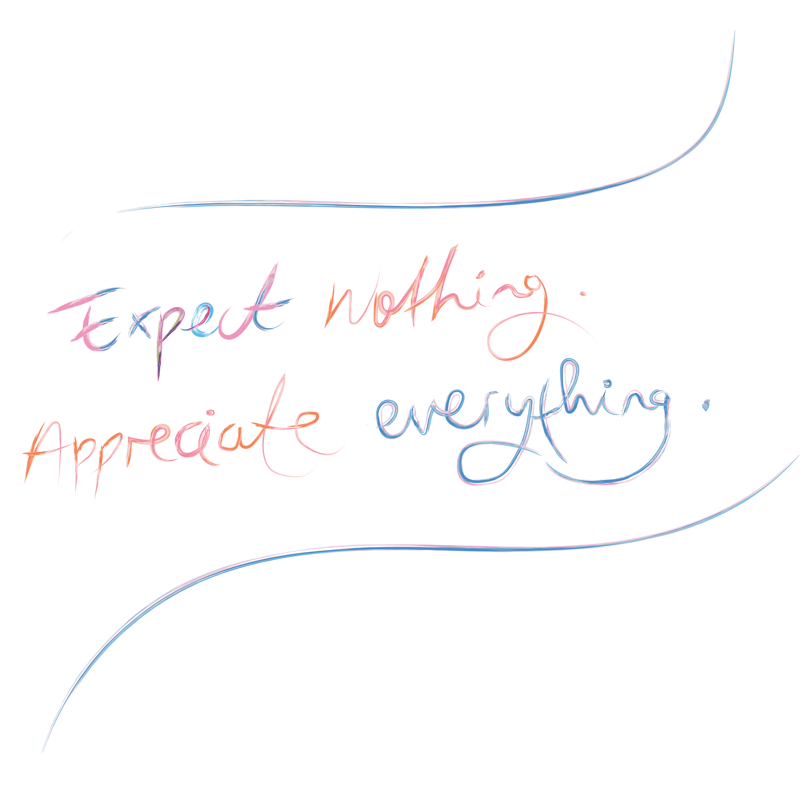 Expect Nothing.
Appreciate everything.